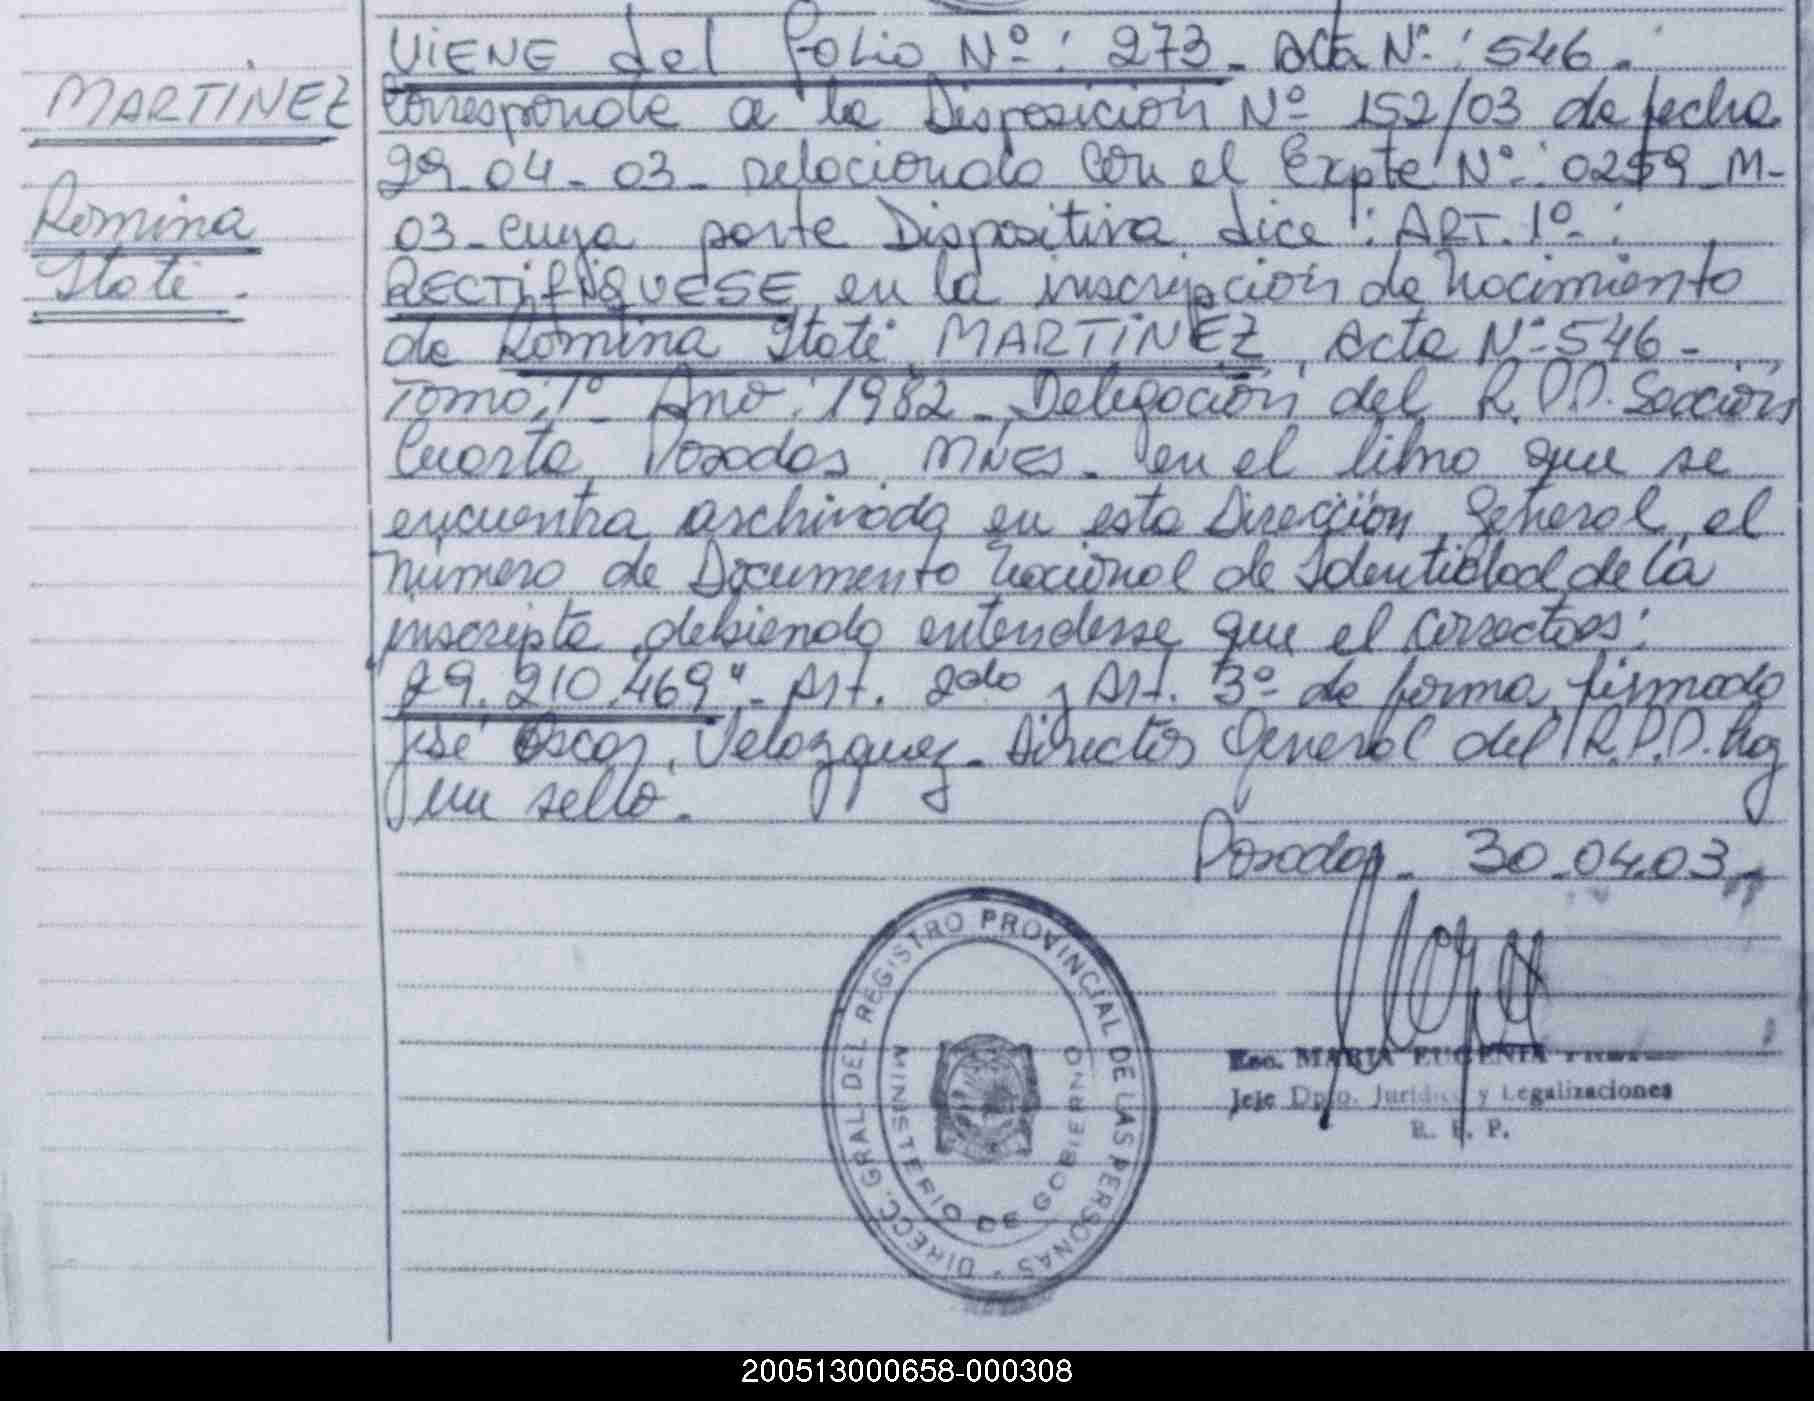 MARTINEZ
Romina
Itatí.
VIENE del folio Nº: 273. Acta Nº: 546.
Corresponde a la Disposición Nº 152/03 de fecha
29-04-03- relacionado con el Expte Nº: 0259-M-
03- cuya parte Dispositiva dice: ART. 1º:
RECTIFÍQUESE en la inscripción de nacimiento
de Romina Itatí MARTINEZ, Acta Nº 546-
Tomo: 1º Año: 1982- Delegación del R.P.P. Sección
Cuarta Posadas Mnes. en el libro que se
encuentra archivado en esta Dirección General, el
número de Documento Nacional de Identidad de la
inscripta debiendo entenderse que el correcto es:
29.210.469"- Art. 2do y Art. 3º de forma, firmado
José Oscar Velazquez- Director General del R.P.P. hay
un sello.
Posadas- 30-04-03-
DIRECC. GRAL. DEL REGISTRO PROVINCIAL DE LAS PERSONAS -
MINISTERIO DE GOBIERNO
Esc. MARIA EUGENIA
Jefe Dpto. Jurídico y Legalizaciones
R. P. P.
200513000658-000308